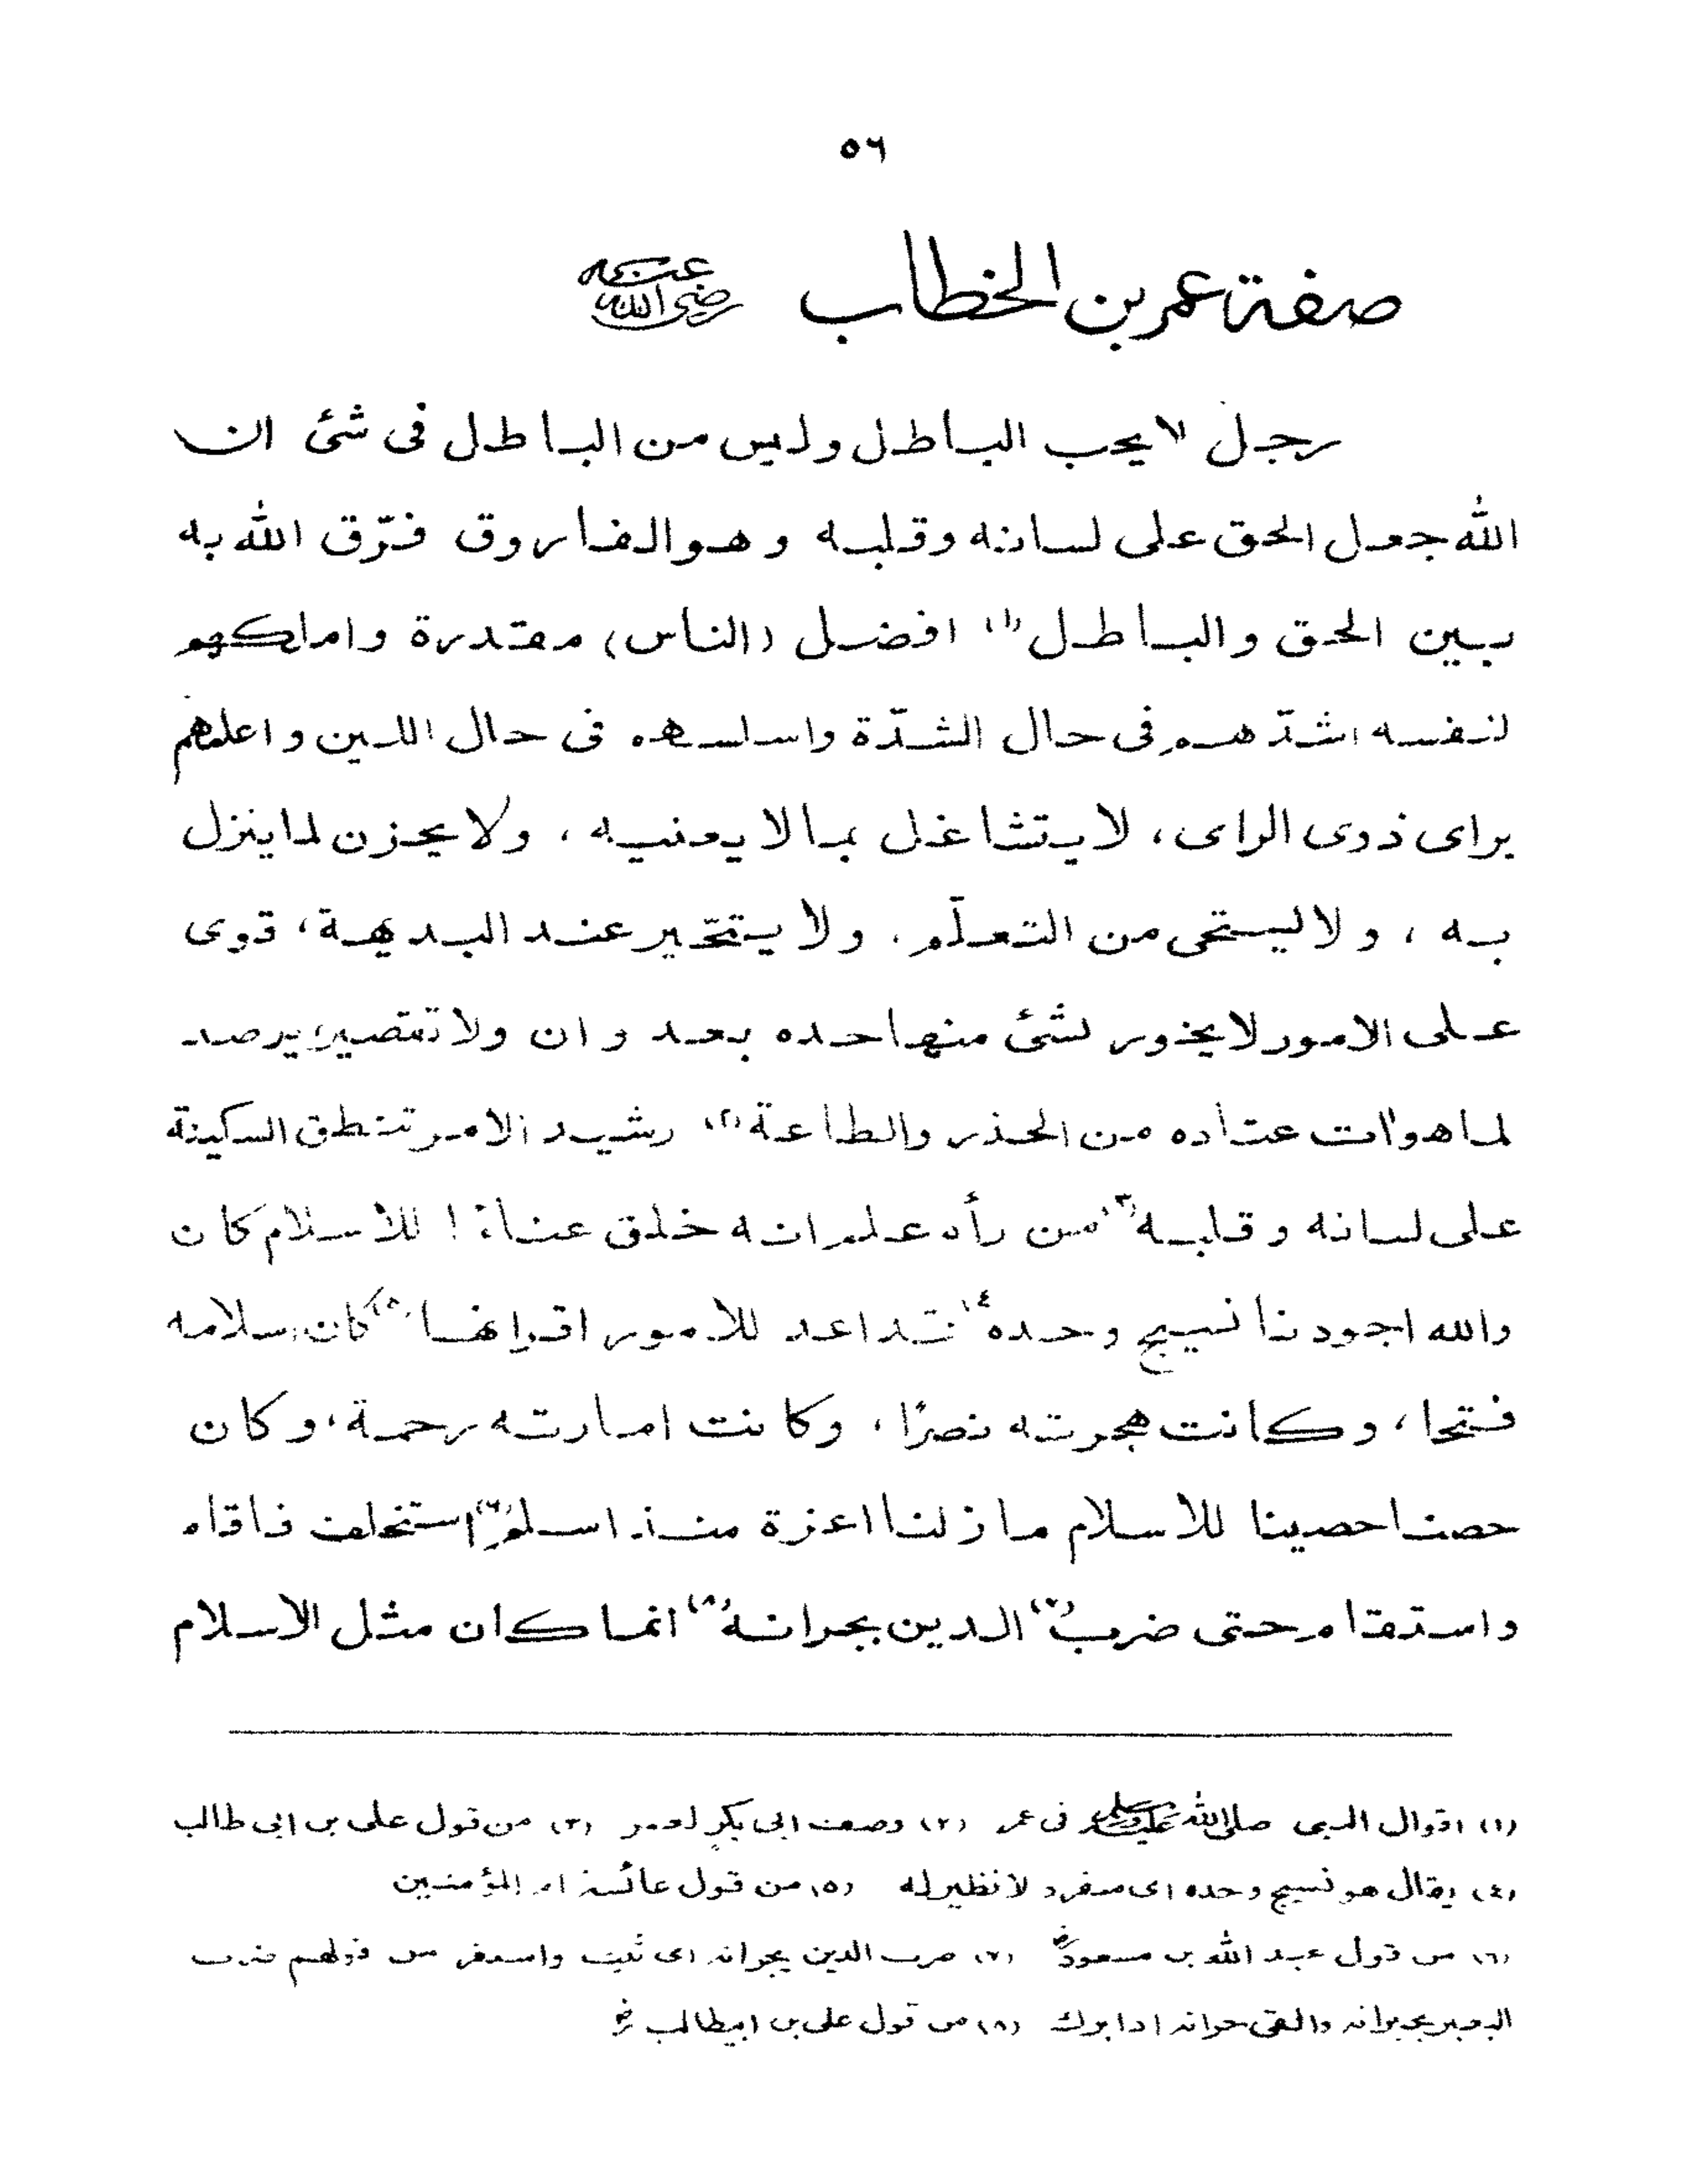 ٥٦
صفة عمر بن الخطاب رضى الله عنه
رجل لا يحب الباطل وليس من الباطل فى شئ ان
الله جعل الحق على لسانه وقلبه وهو الفاروق فرّق الله به
بين الحق والباطل (١) افضل (الناس) مقدرة واملكهم
لنفسه اشدّهم فى حال الشدّة واسلسهم فى حال اللين واعلمهم
براى ذوى الراى، لا يتشاغل بما لا يعنيه، ولا يحزن لما ينزل
به، ولا ليستحى من التعلّم، ولا يتحّير عند البديهة، قوى
على الامور لا يخور لشئ منها حده بعدوان ولا تقصير، يرصد
لما هو اٰت عتاده من الحذر والطاعة (٢) رشيد الامر تنطق السكينة
على لسانه وقلبه (٣) من رأه علم انه خلق عناءً ! للاسلام كان
والله اجودنا نسيج وحده (٤) قد اعد للامور اقرانها (٥) كان اسلامه
فتحا، وكانت هجرته نصرًا، وكانت امارته رحمة، وكان
حصنا حصينا للاسلام ما زلنا اعزة منذ اسلم (٦) استخلف فاقام
واستقام حتى ضرب (٧) الدين بجرانه (٨) انما كان مثل الاسلام
(١) اقوال النبى صلى الله عليه وسلم فى عمر (٢) وصف ابى بكر لعمر (٣) من قول على بن ابى طالب
(٤) يقال هو نسيج وحده اى منفرد لا نظير له (٥) من قول عائشة ام المؤمنين
(٦) من قول عبد الله بن مسعودؓ (٧) ضرب الدين بجرانه اى ثبت واستقر من قولهم ضرب
البعير بجرانه والقى جرانه اذا برك (٨) من قول على بن ابيطالب ؓ